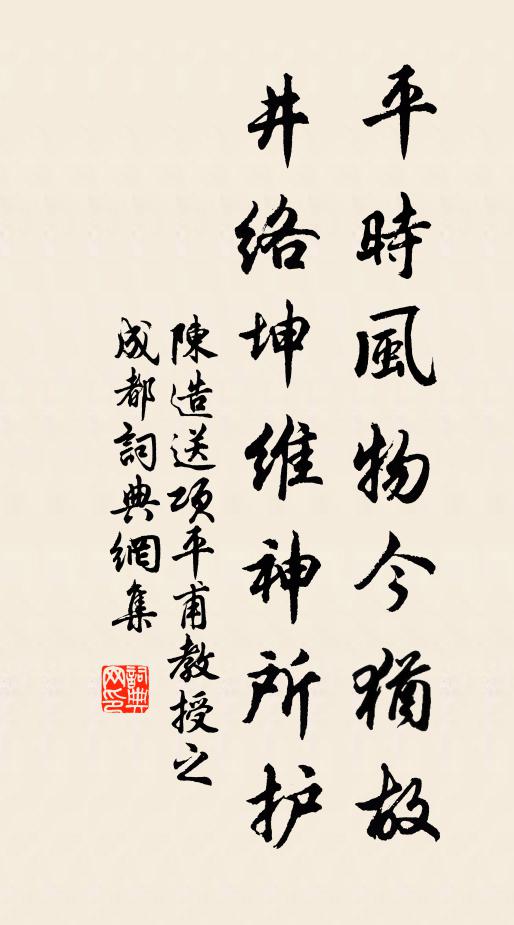 平時風物今猶故
井络坤維神所护
陳造送項平甫教授之
成都詞典網集
詞典
网印